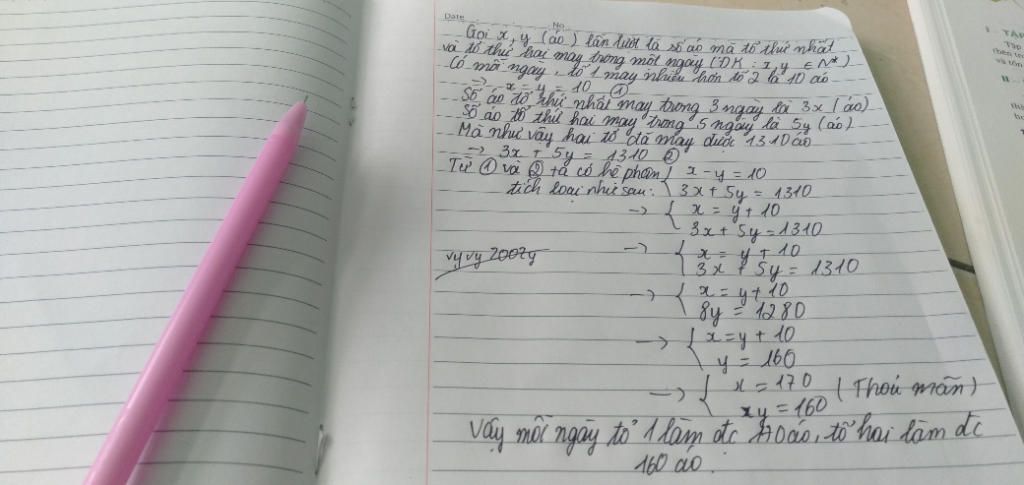 Date No
Gọi x, y (áo) lần lượt là số áo mà tổ thứ nhất
và tổ thứ hai may trong một ngày (ĐK: x, y ∈ N*)
Có mỗi ngày, tổ 1 may nhiều hơn tổ 2 là 10 áo
=> x = y = 10 ①
Số áo tổ thứ nhất may trong 3 ngày là 3x (áo)
Số áo tổ thứ hai may trong 5 ngày là 5y (áo)
Mà như vậy hai tổ đã may được 1310 áo
=> 3x + 5y = 1310 ②
Từ ① và ② ta có hệ phân { x - y = 10
tích loại như sau: 3x + 5y = 1310
-> { x = y + 10
3x + 5y = 1310
vyvy 2007y
-> { x = y + 10
3x + 5y = 1310
-> { x = y + 10
8y = 1280
-> { x = y + 10
y = 160
-> { x = 170 (Thoả mãn)
xy = 160
Vậy mỗi ngày tổ 1 làm đc 170 áo, tổ hai làm đc
160 áo.